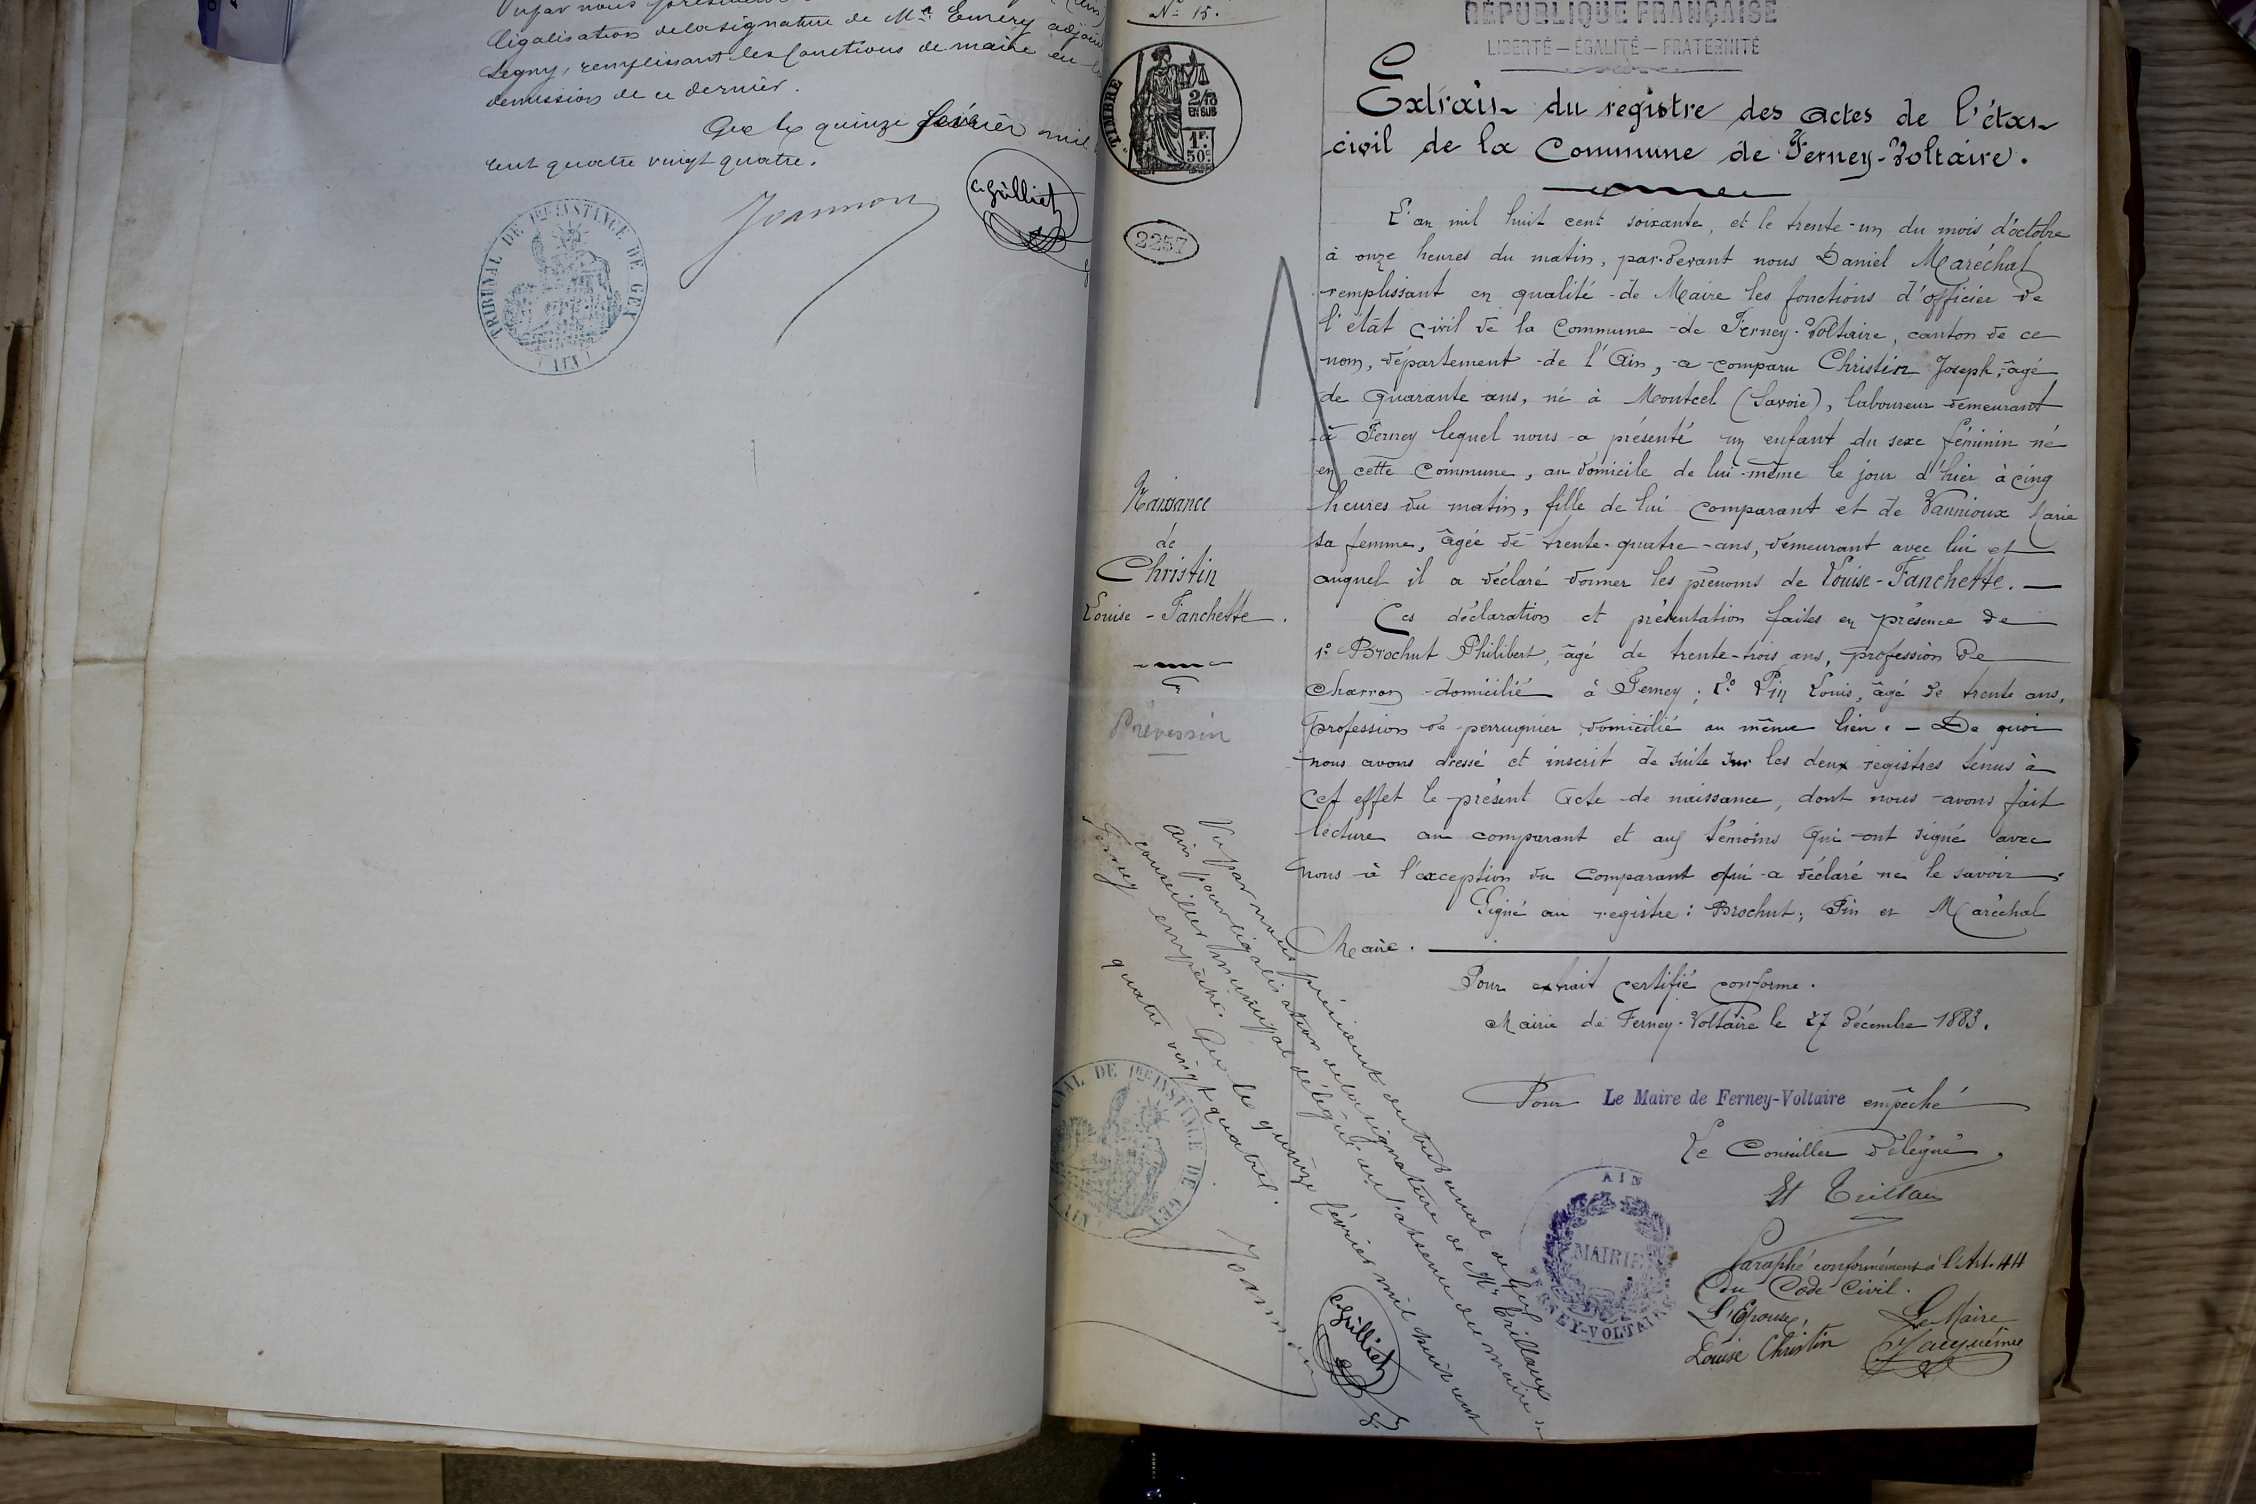 Vu par nous
légalisation de la signature de Mr. Emery adjoint
Segny, remplissant les fonctions de maire en
démission de ce dernier.
Gex le quinze février mil
cent quatre vingt quatre.
Jeannon
Grilliet
TRIBUNAL DE 1ERE INSTANCE DE GEX
(AIN)
No 15.
RÉPUBLIQUE FRANÇAISE
LIBERTÉ — ÉGALITÉ — FRATERNITÉ
TIMBRE
2/10
EN SUS
1F.
50c
2257
Extrait du registre des actes de l'état
civil de la Commune de Ferney-Voltaire.
L'an mil huit cent soixante, et le trente-un du mois d'octobre
à onze heures du matin, par-devant nous Daniel Maréchal
remplissant en qualité de Maire les fonctions d'officier de
l'état civil de la Commune de Ferney-Voltaire, canton de ce
nom, département de l'Ain, a comparu Christin Joseph, âgé
de quarante ans, né à Montcel (Savoie), laboureur demeurant
à Ferney lequel nous a présenté un enfant du sexe féminin né
en cette commune, au domicile de lui-même le jour d'hier à cinq
heures du matin, fille de lui comparant et de Vannioux Marie
sa femme, âgée de trente-quatre-ans, demeurant avec lui et
auquel il a déclaré donner les prénoms de Louise-Fanchette. —
Ces déclaration et présentation faites en présence de
1o Brochut Philibert, âgé de trente-trois ans, profession de
charron domicilié à Ferney; 2o Pin Louis, âgé de trente ans,
profession de perruquier domicilié au même lieu. — De quoi
nous avons dressé et inscrit de suite sur les deux registres tenus à
cet effet le présent Acte de naissance, dont nous avons fait
lecture au comparant et aux témoins qui ont signé avec
nous à l'exception du Comparant qui a déclaré ne le savoir.
Signé au registre: Brochut, Pin et Maréchal
Maire.
Naissance
de
Christin
Louise-Fanchette.
Prévessin
Pour extrait certifié conforme.
Mairie de Ferney-Voltaire le 27 Décembre 1883.
Pour Le Maire de Ferney-Voltaire empêché
Le Conseiller délégué,
Trillau
AIN
MAIRIE
FERNEY-VOLTAIRE
Paraphé conformément à l'Art. 44
du Code Civil.
L'Epouse, Le Maire
Louise Christin Jacquemier
Vu par nous président du tribunal de Gex
Ain pour légalisation de la signature de Mr Trillaux
conseiller municipal délégué en l'absence du maire de
Ferney empêché. Gex le quinze février mil huit cent
quatre vingt quatre.
Jeannon
Grilliet
TRIBUNAL DE 1ERE INSTANCE DE GEX
(AIN)